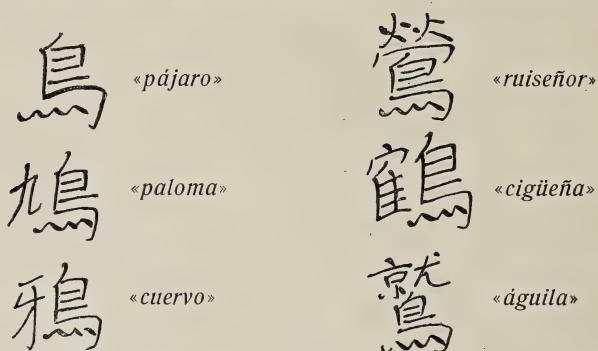 鳥 «pájaro»
鳩 «paloma»
鴉 «cuervo»
鶯 «ruiseñor»
鶴 «cigüeña»
鷲 «águila»